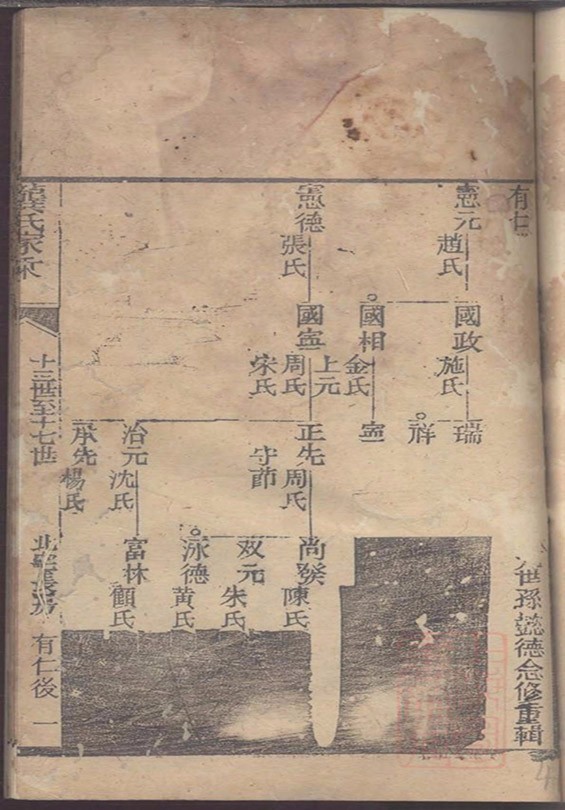 有仁
世孫懿德念修重輯
憲元
趙氏
憲德
張氏
國政
施氏
國相
金氏
國寧
上元
周氏
宋氏
瑞
祥
寧
正先
周氏
守節
治元
沈氏
承先
楊氏
尚癸
陳氏
双元
朱氏
泳德
黃氏
富林
顧氏
氏家
十三世至十七世
有仁後 一